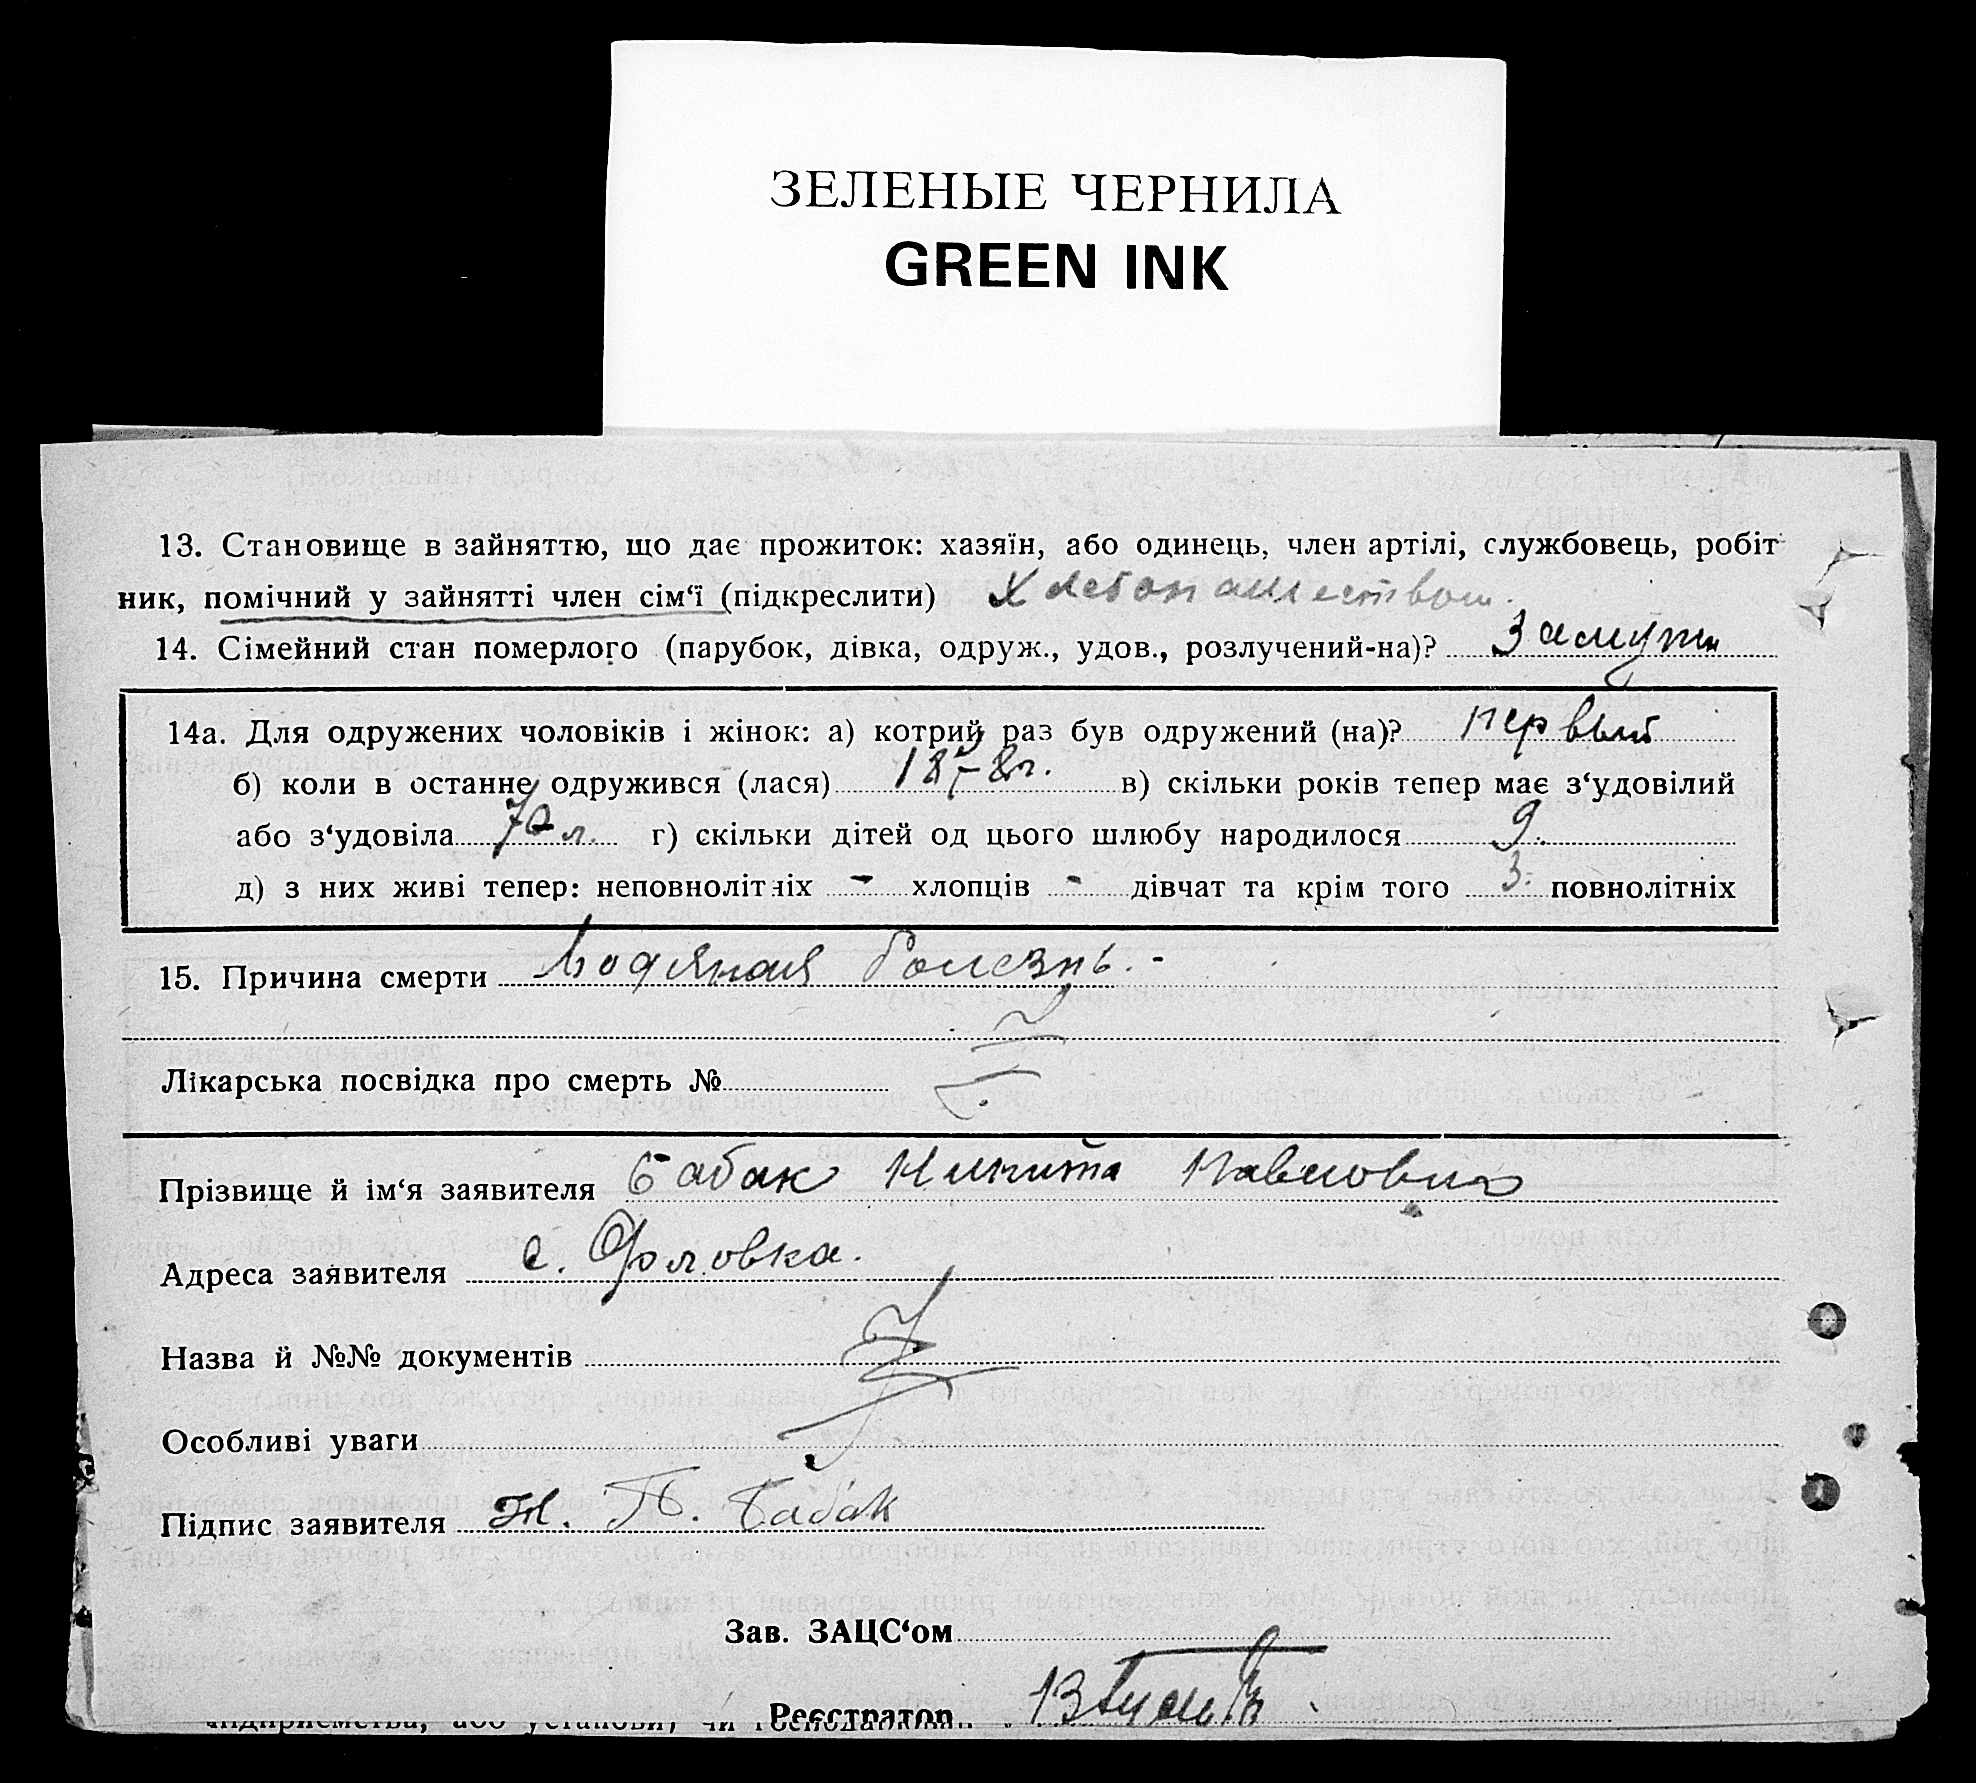 ЗЕЛЕНЫЕ ЧЕРНИЛА
GREEN INK
13. Становище в зайняттю, що дає прожиток: хазяїн, або одинець, член артілі, службовець, робіт
ник, помічний у зайнятті член сім‘ї (підкреслити) Хлебопашеством.
14. Сімейний стан померлого (парубок, дівка, одруж., удов., розлучений-на)? Замужн
14а. Для одружених чоловіків і жінок: а) котрий раз був одружений (на)? первый
б) коли в останне одружився (лася) 1878г. в) скільки років тепер має з‘удовілий
або з‘удовіла 70 л. г) скільки дітей од цього шлюбу народилося 9.
д) з них живі тепер: неповнолітніх - хлопців - дівчат та крім того 3 повнолітніх
15. Причина смерти Водяная болезнь. -
Лікарська посвідка про смерть №
Прізвище й ім‘я заявителя Бабак Никита Павлович
Адреса заявителя с. Орловка.
Назва й №№ документів
Особливі уваги
Підпис заявителя Н. П. Бабак
Зав. ЗАЦС‘ом
Реєстратор